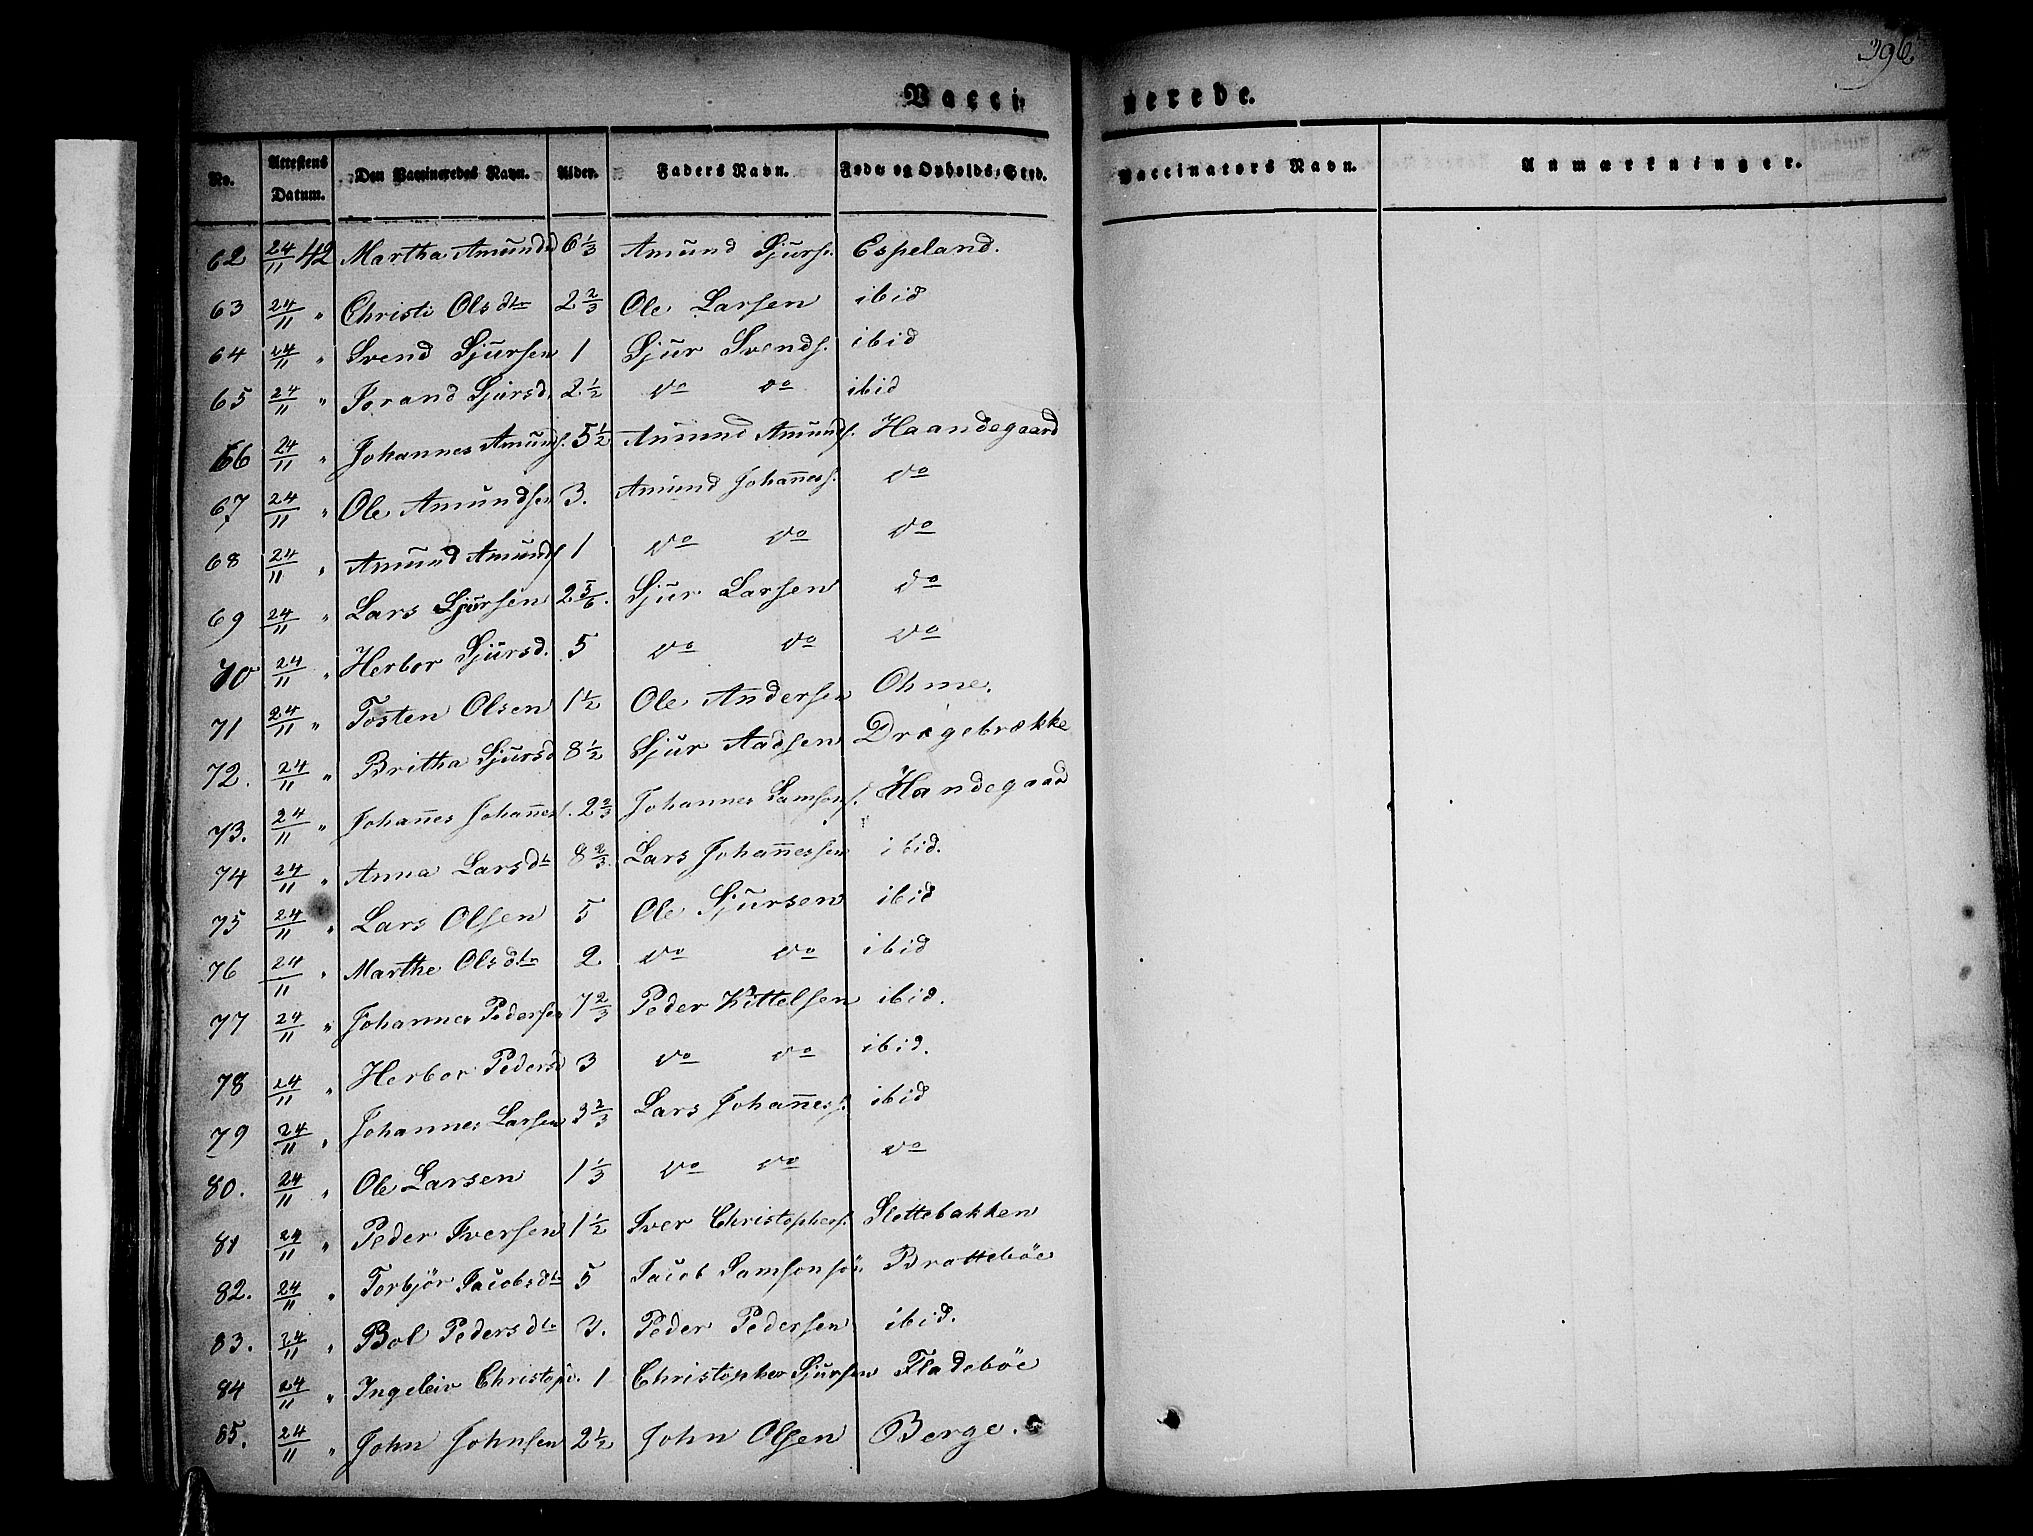 396
Vacci- nerede.
No. Attestens Datum. Den Vaccineredes Navn. Alder. Faders Navn. Føde- og Opholds-Sted. Vaccinators Navn. Anmærkninger.
62 24/11 42 Martha Amundsd 6 1/3 Amund Sjurs. Espeland.
63 24/11 " Christi Olsdtr 2 2/3 Ole Larsen ibid
64 24/11 " Svend Sjursen 1 Sjur Svends. ibid
65 24/11 " Jorand Sjursd. 2 1/2 do do ibid
66 24/11 " Johannes Amunds. 5 1/2 Amund Amunds. Haandegaard
67 24/11 " Ole Amundsen 3. Amund Johaness. do
68 24/11 " Amund Amunds 1 do do do
69 24/11 " Lars Sjursen 2 5/6. Sjur Larsen do
70 24/11 " Herbor Sjursd. 5 do do do
71 24/11 " Tosten Olsen 1 1/2 Ole Andersen Ohme.
72. 24/11 " Britha Sjursd 8 1/2 Sjur Aadsen Dragebrække
73. 24/11 " Johanes Johanes. 2 2/3 Johannes Samsons. Handegaard
74 24/11 " Anna Larsdtr 8 2/3. Lars Johanessen ibid.
75 24/11 " Lars Olsen 5 Ole Sjursen ibid
76 24/11 " Marthe Olsdtr 2. do do ibid
77 24/11 " Johannes Pedersen 7 2/3 Peder Kittelsen ibid.
78 24/11 " Herbor Pedersd 3 do do ibid.
79 24/11 " Johannes Larsen 3 2/3 Lars Johaness. ibid
80. 24/11 " Ole Larsen 1 1/3 do do do
81 24/11 " Peder Iversen 1 1/2 Iver Christophers. Slottebakken
82. 24/11 " Torbjör Jacobsdtr 5 Jacob Samsonsön Bratteböe
83. 24/11 " Bol Pedersdtr 3. Peder Pedersen ibid.
84 24/11 " Ingeleiv 1 Christopher Sjursen Fladeböe
85. 24/11 " John Johnsen 2 1/2 John Olsen Berge.